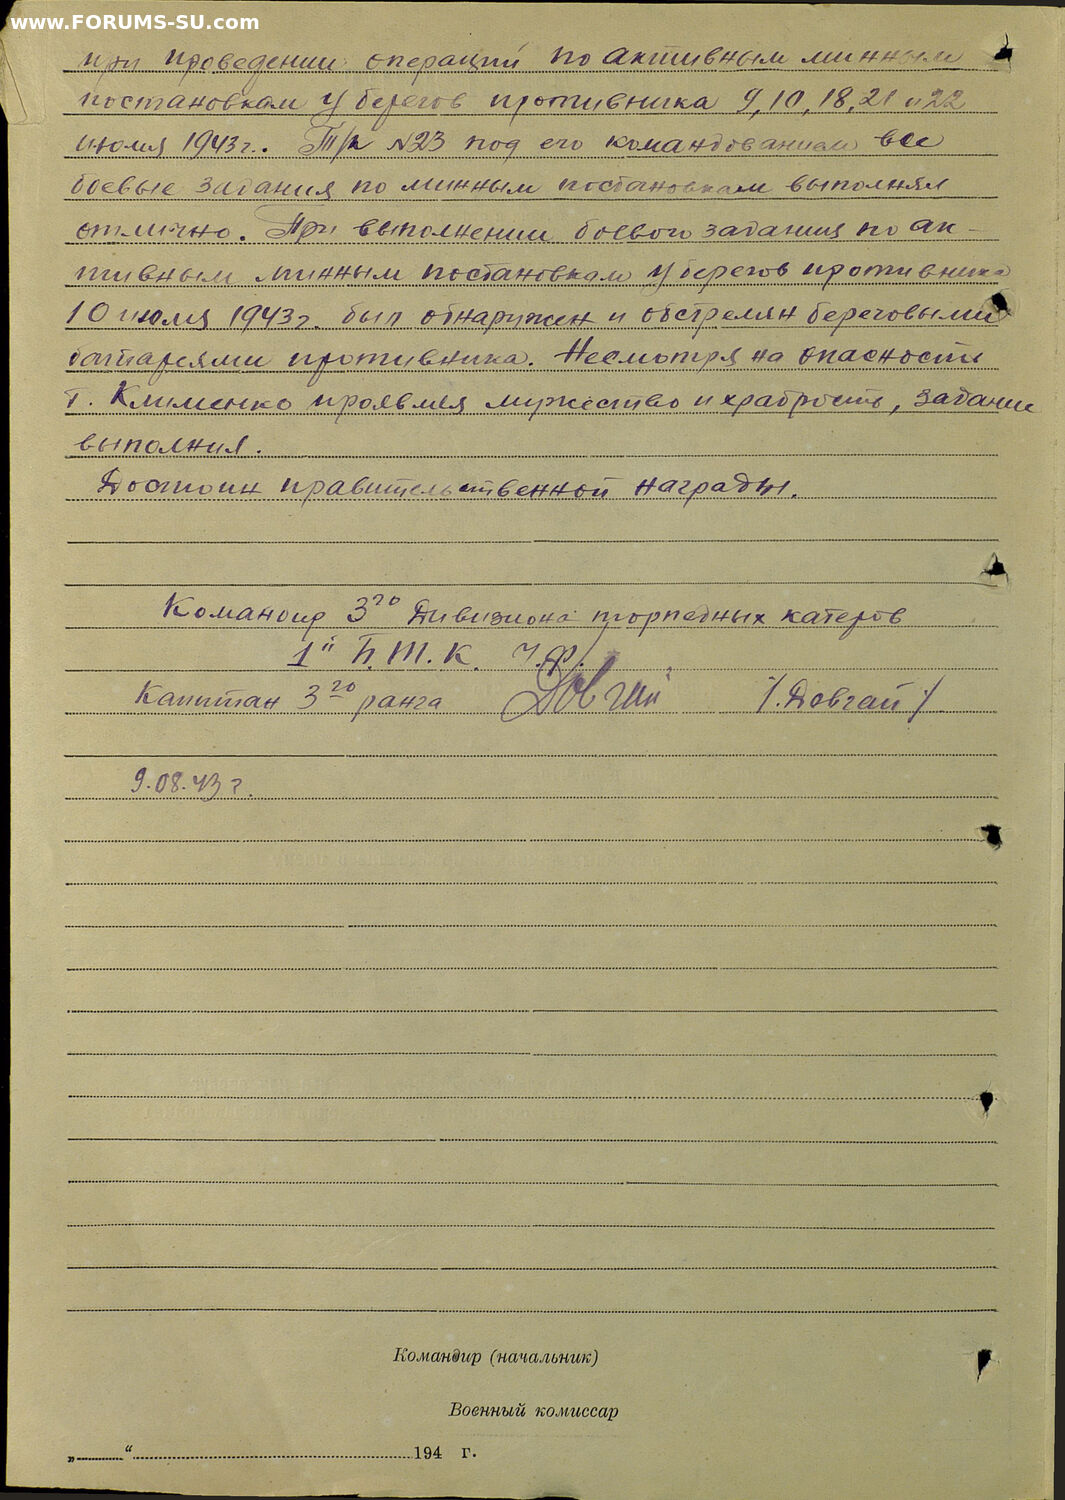 www.FORUMS-SU.com
при проведении операций по активным минным
постановкам у берегов противника 9, 10, 18, 21 и 22
июля 1943 г.. Т/к №23 под его командованием все
боевые задания по минным постановкам выполнял
отлично. При выполнении боевого задания по ак-
тивным минным постановкам у берегов противника
10 июля 1943 г. был обнаружен и обстрелян береговыми
батареями противника. Несмотря на опасность
т. Клименко проявляя мужество и храбрость, задание
выполнил.
Достоин правительственной награды.
Командир 3го Дивизиона торпедных катеров
1й Б.Т.К. Ч.Ф.
Капитан 3го ранга Довгай /.Довгай/
9.08.43 г.
Командир (начальник)
Военный комиссар
„ “ 194 г.